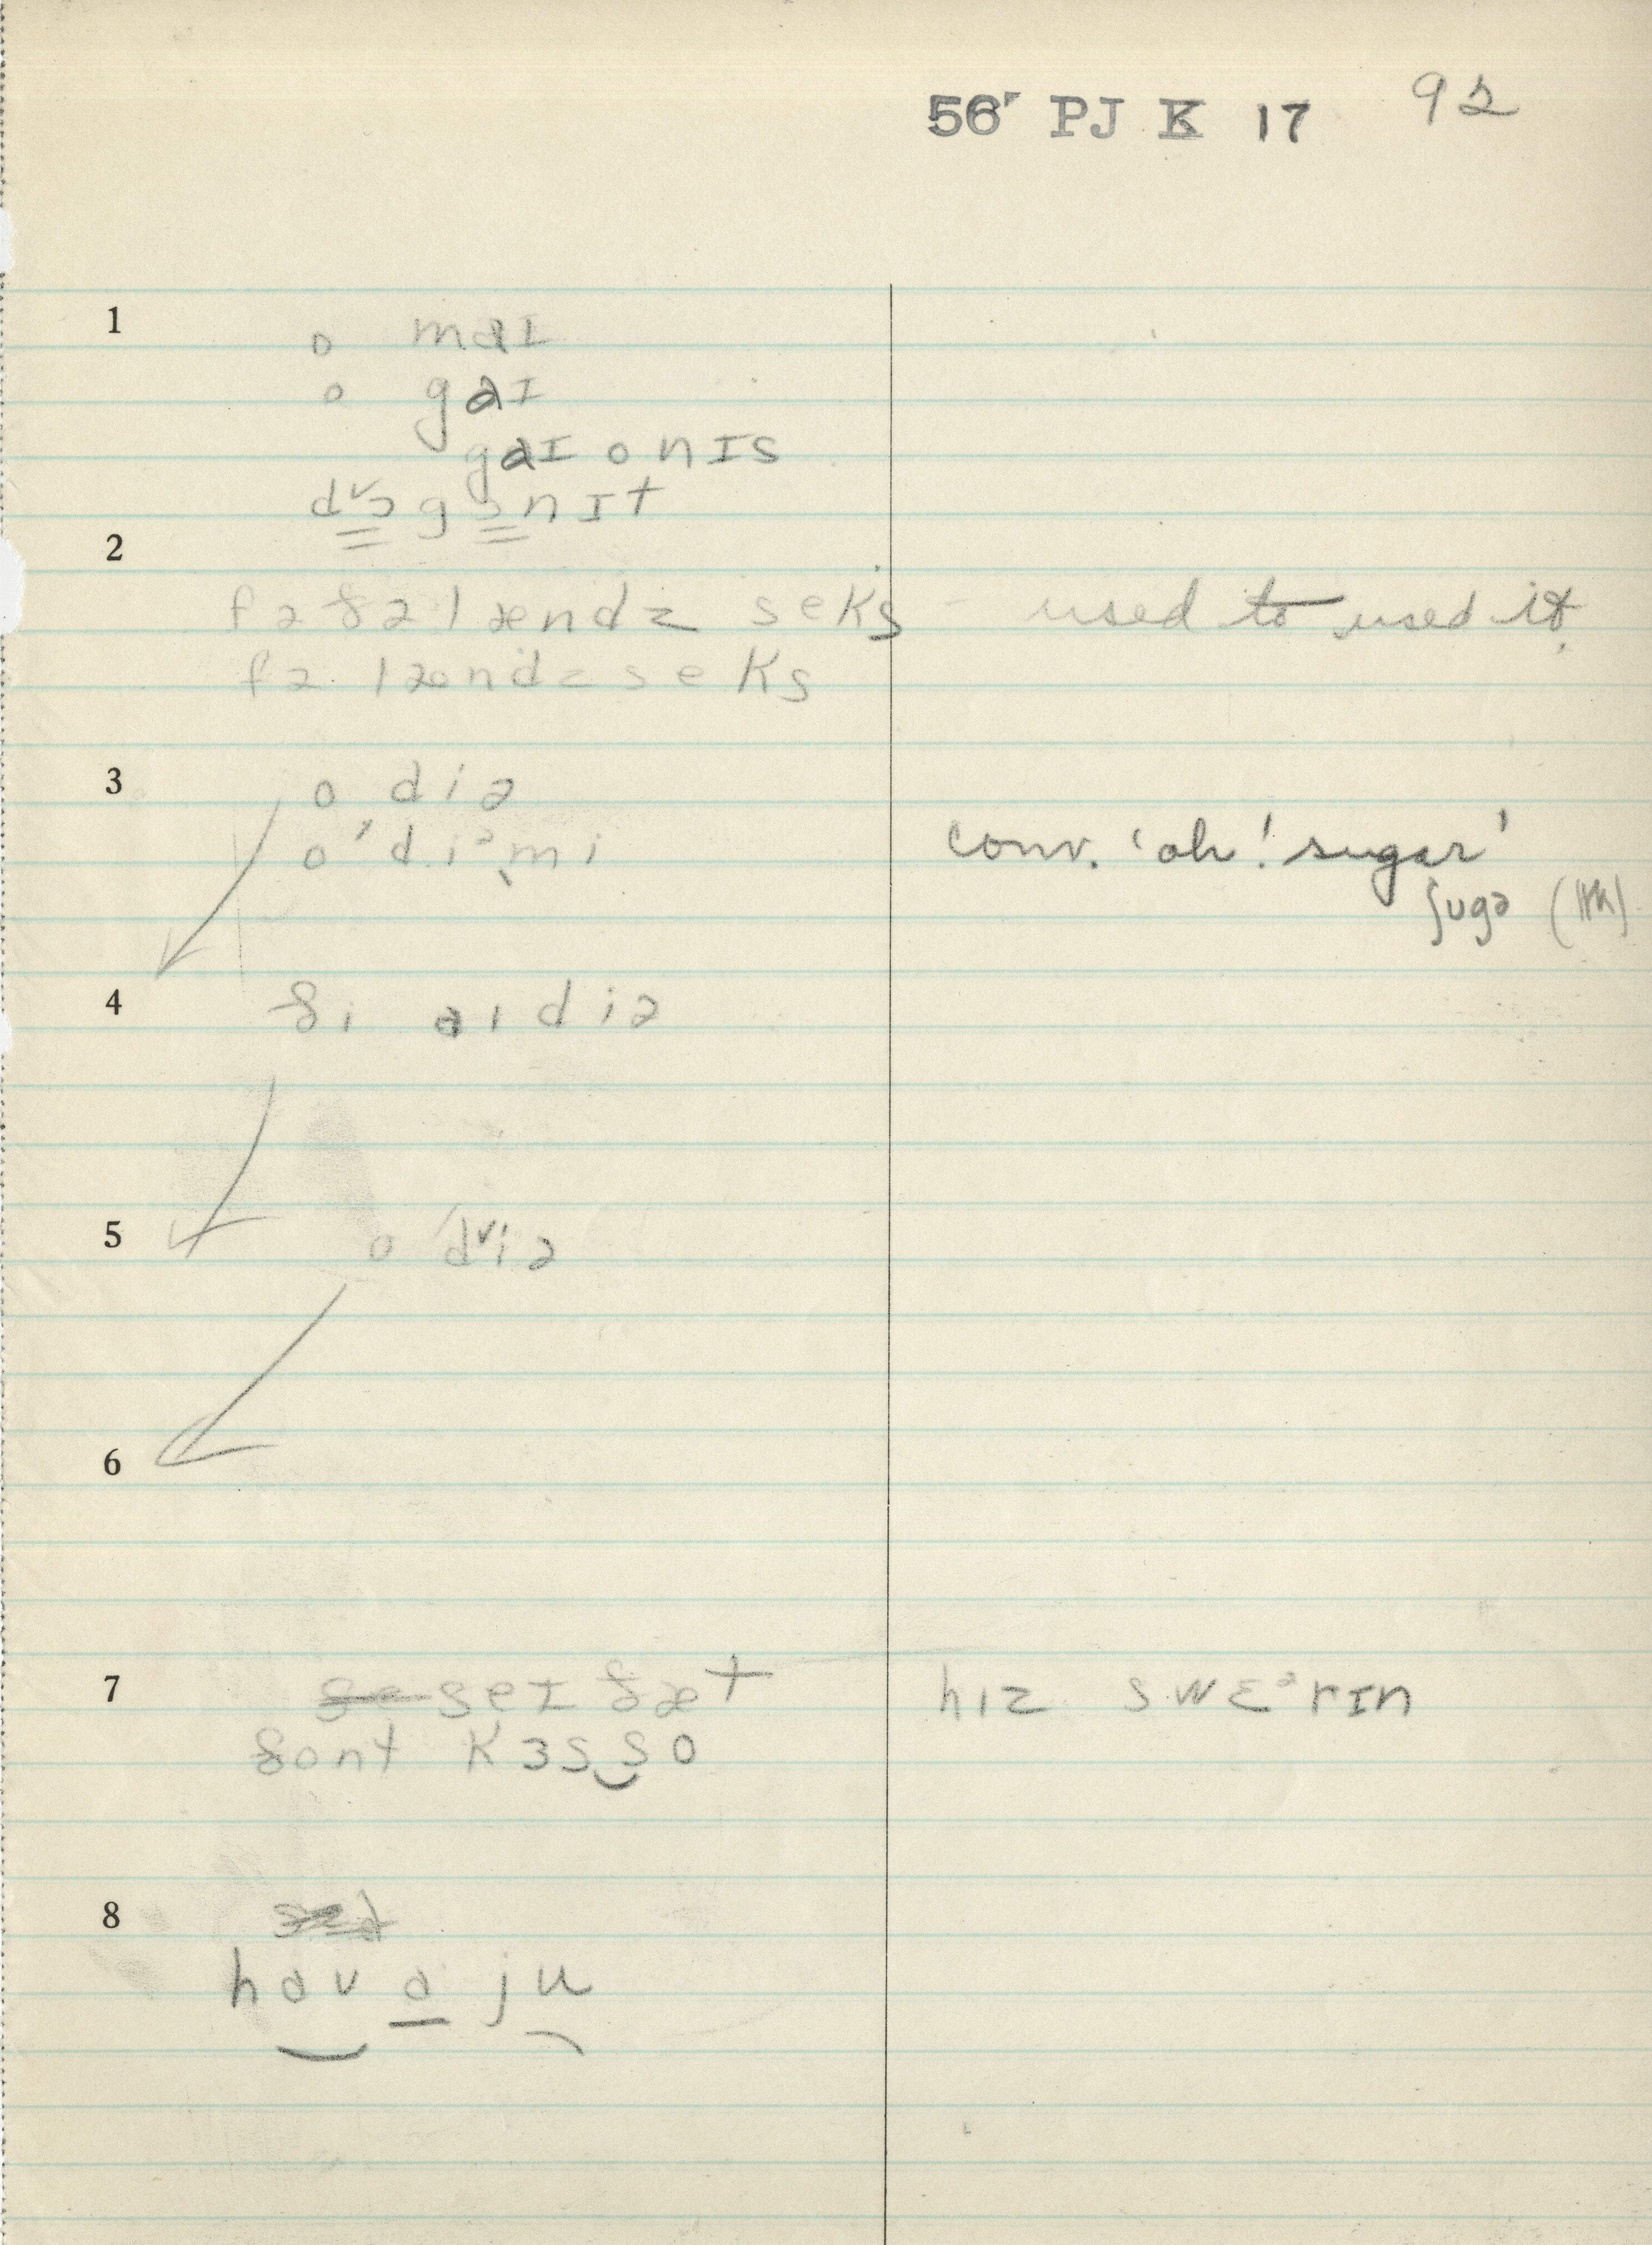 56 PJ K 17 92
1 o maI
o gaI
gaI o nIs
dᵛɔ gɔnIt
2
fə ðə lændz seks - used to used it.
fə lændz seks
3 o diə
o 'diᵊˎmi conv. 'oh! sugar'
ʃugə
4 ði aidiə
5 o 'dᵛiə
6
7 seI ðæt hIz swɛᵊrIn
ðont kɜs so
8
hav a ju